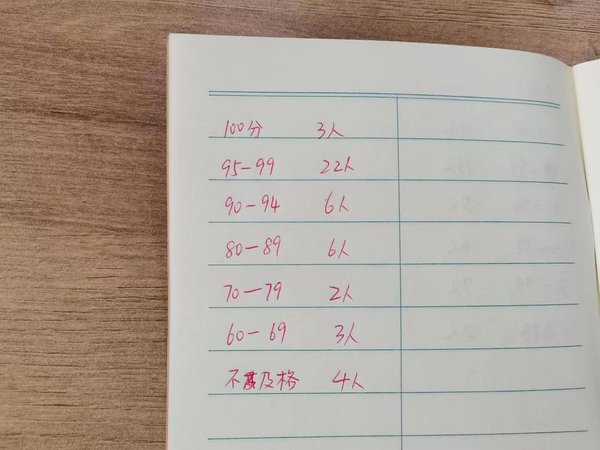 100分 3人
95-99 22人
90-94 6人
80-89 6人
70-79 2人
60-69 3人
不及格 4人